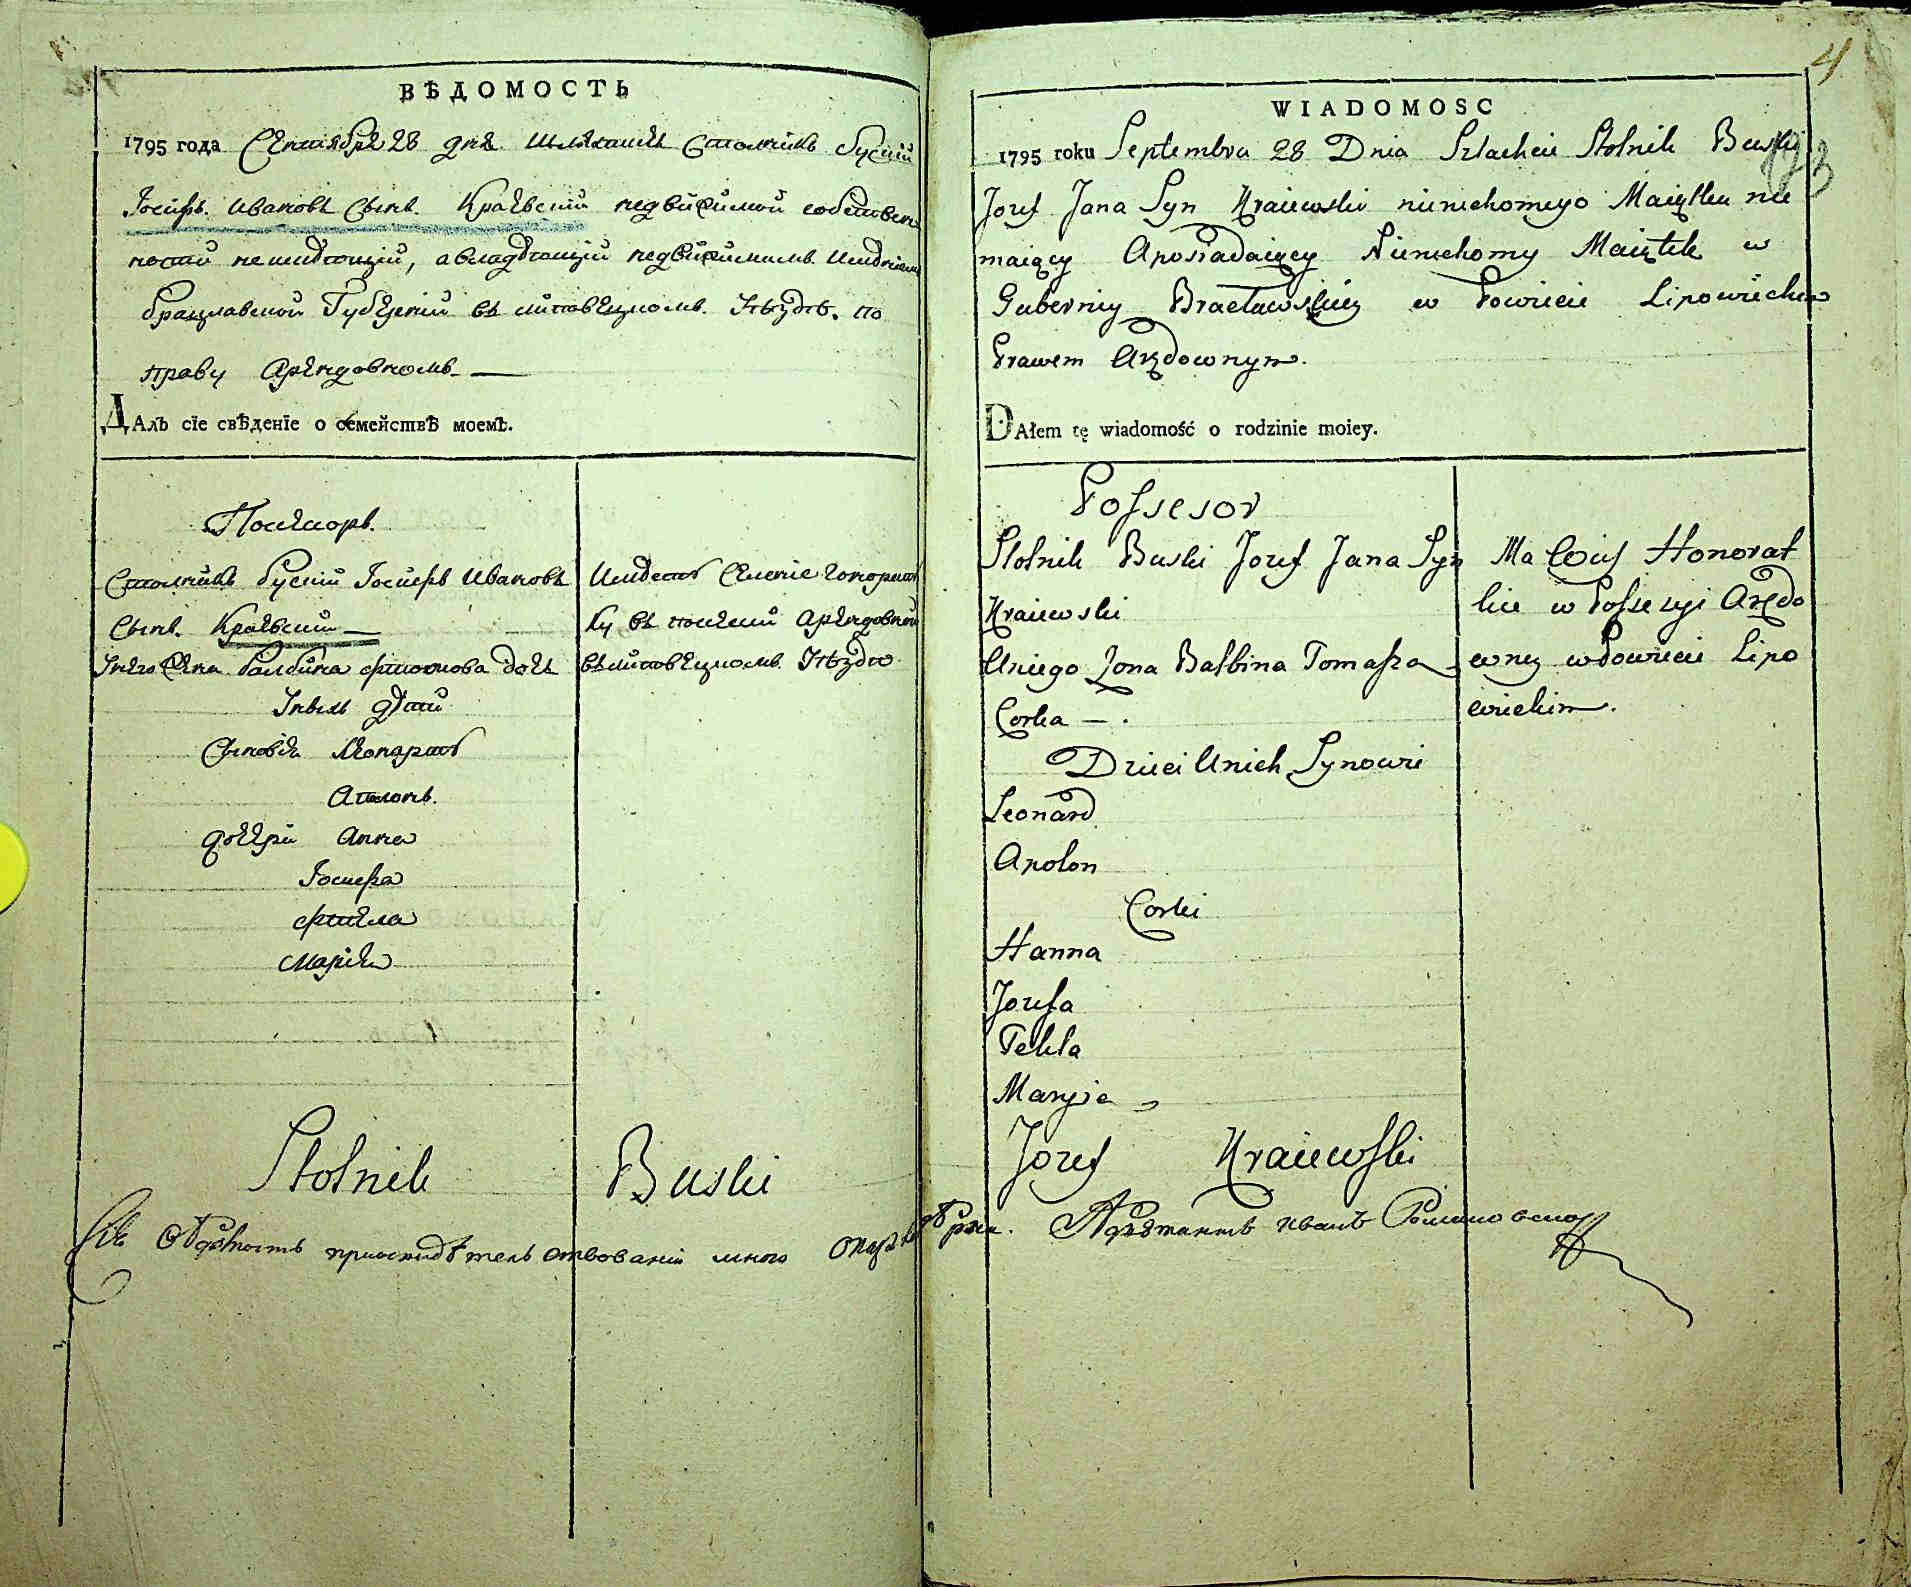 ВѢДОМОСТЬ
1795 года Сентября 28 дня шляхтичъ Стольникъ Буский
Іосифъ Ивановъ Сынъ Краевский недвижимой собствен
ности неимѣющий, а владѣющий недвижимымъ имѣнием
Брацлавской Губерний въ липовецкомъ уѣздѣ по
праву Арендовномъ
ДАлъ сїе свѣденїе о семействѣ моемъ.
Посесоръ
Стольникъ Буский Іосифъ Ивановъ
Сынъ Краевский
Унего жена Балбина фтомова дочь
Унихъ дѣти
Сыновья Леонардъ
Аполонъ
дочери Анна
Іосифа
фтекла
Марія
Имѣетъ Селеніе Гонорат
ку въ посесии Арендовной
въ липовецкомъ уѣздѣ
Stolnik Buski
4
123
WIADOMOSC
1795 roku Septembra 28 Dnia Szlachcic Stolnik Buski
Jozef Jana Syn Kraiewski nieruchomego Maiątku nie
maiący Aposiadaiący Nieruchomy Maiątek w
Gubernij Bracławskiey w Powiecie Lipowieckim
Prawem Arędownym.
DAłem tę wiadomość o rodzinie moiey.
Possesor
Stolnik Buski Jozef Jana Syn
Kraiewski
Uniego Zona Balbina Tomasza
Corka
Dzieci Unich Synowie
Leonard
Apolon
Corki
Hanna
Jozefa
Tekla
Maryia
Ma Wies Honorat
kie w Possesyi Arędo
wney w Powiecie Lipo
wieckim.
Jozef Kraiewski
Адъютантъ Иванъ